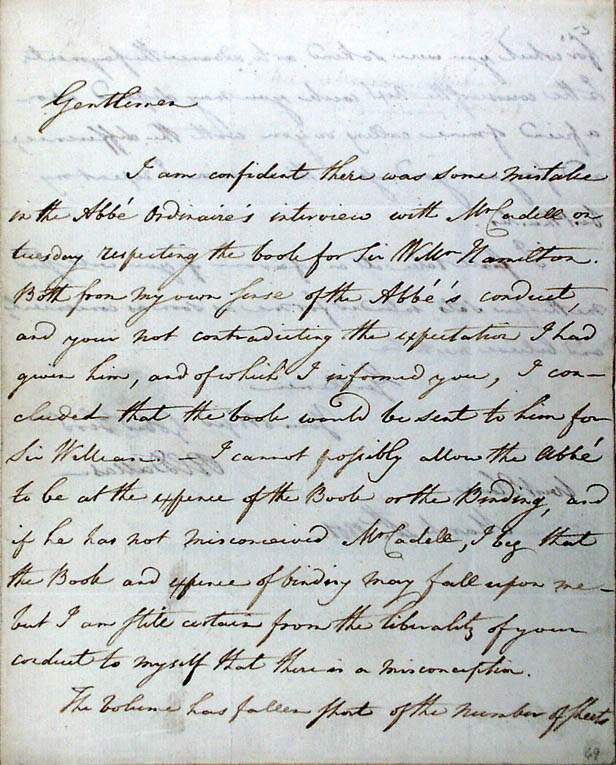 Gentlemen
I am confident there was some mistake
in the Abbé Ordinaire's interview with Mr Cadell on
tuesday respecting the book for Sir Willm Hamilton.
Both from my own sense of the Abbé's conduct,
and your not contradicting the expectation I had
given him, and of which I informed you, I con-
cluded that the book would be sent to him for
Sir William - I cannot possibly allow the Abbé
to be at the expence of the Book or the Binding, and
if he has not misconceived Mr Cadell, I beg that
the Book and expence of binding may fall upon me -
but I am still certain from the liberality of your
conduct to myself that there is a misconception.
The Volume has fallen short of the number of sheets
49